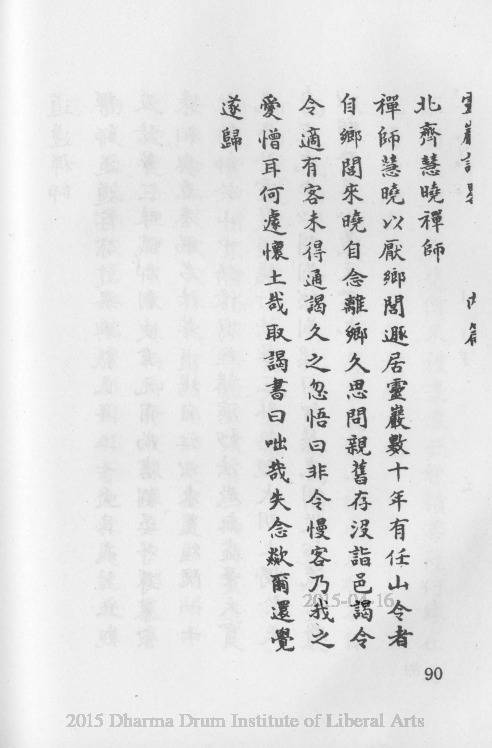 靈巖記畧 內篇
北齊慧曉禪師
禪師慧曉以厭鄉閭遯居靈巖數十年有任山令者
自鄉閭來曉自念離鄉久思問親舊存沒詣邑謁令
令適有客未得通謁久之忽悟曰非令慢客乃我之
愛憎耳何處懷土哉取謁書曰咄哉失念歘爾還覺
遂歸
2015-04-16
90
2015 Dharma Drum Institute of Liberal Arts